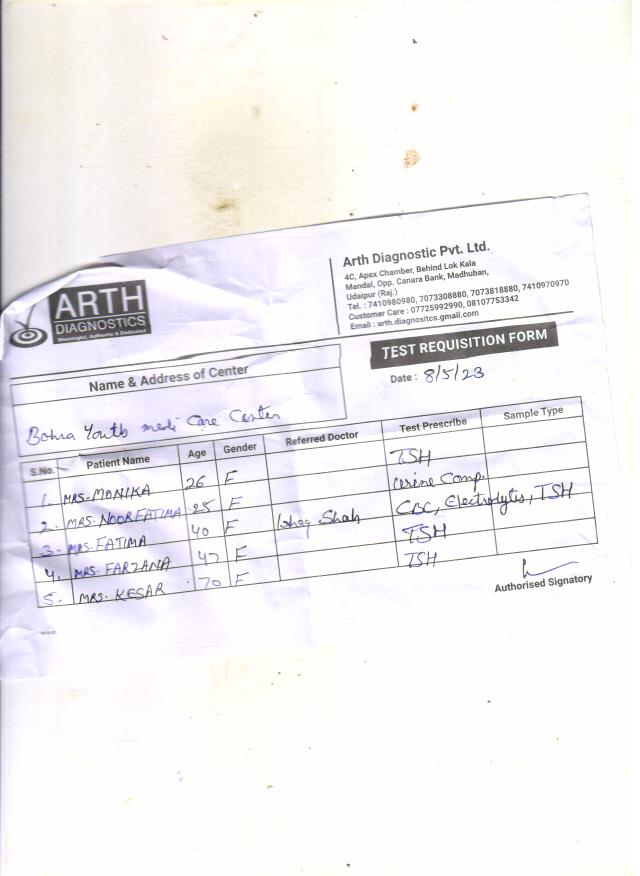 ARTH
DIAGNOSTICS
Meaningful, Authentic & Dedicated
Arth Diagnostic Pvt. Ltd.
4C, Apex Chamber, Behind Lok Kala
Mandal, Opp. Canara Bank, Madhuban,
Udaipur (Raj.)
Tel. : 7410980980, 7073308880, 7073818880, 7410970970
Customer Care : 07725992990, 08107753342
Email : arth.diagnositcs.gmail.com
TEST REQUISITION FORM
Date : 8/5/23
Name & Address of Center
Bohra Youth medi Care Center
S.No. Patient Name Age Gender Referred Doctor Test Prescribe Sample Type
1. MRS. MONIKA 26 F TSH
2. MRS. NOORFATIMA 25 F Urine Comp.
3. MRS. FATIMA 40 F Ishaq Shah CBC, Electrolytes, TSH
4. MRS. FARZANA 47 F TSH
5. MRS. KESAR 70 F TSH
Authorised Signatory